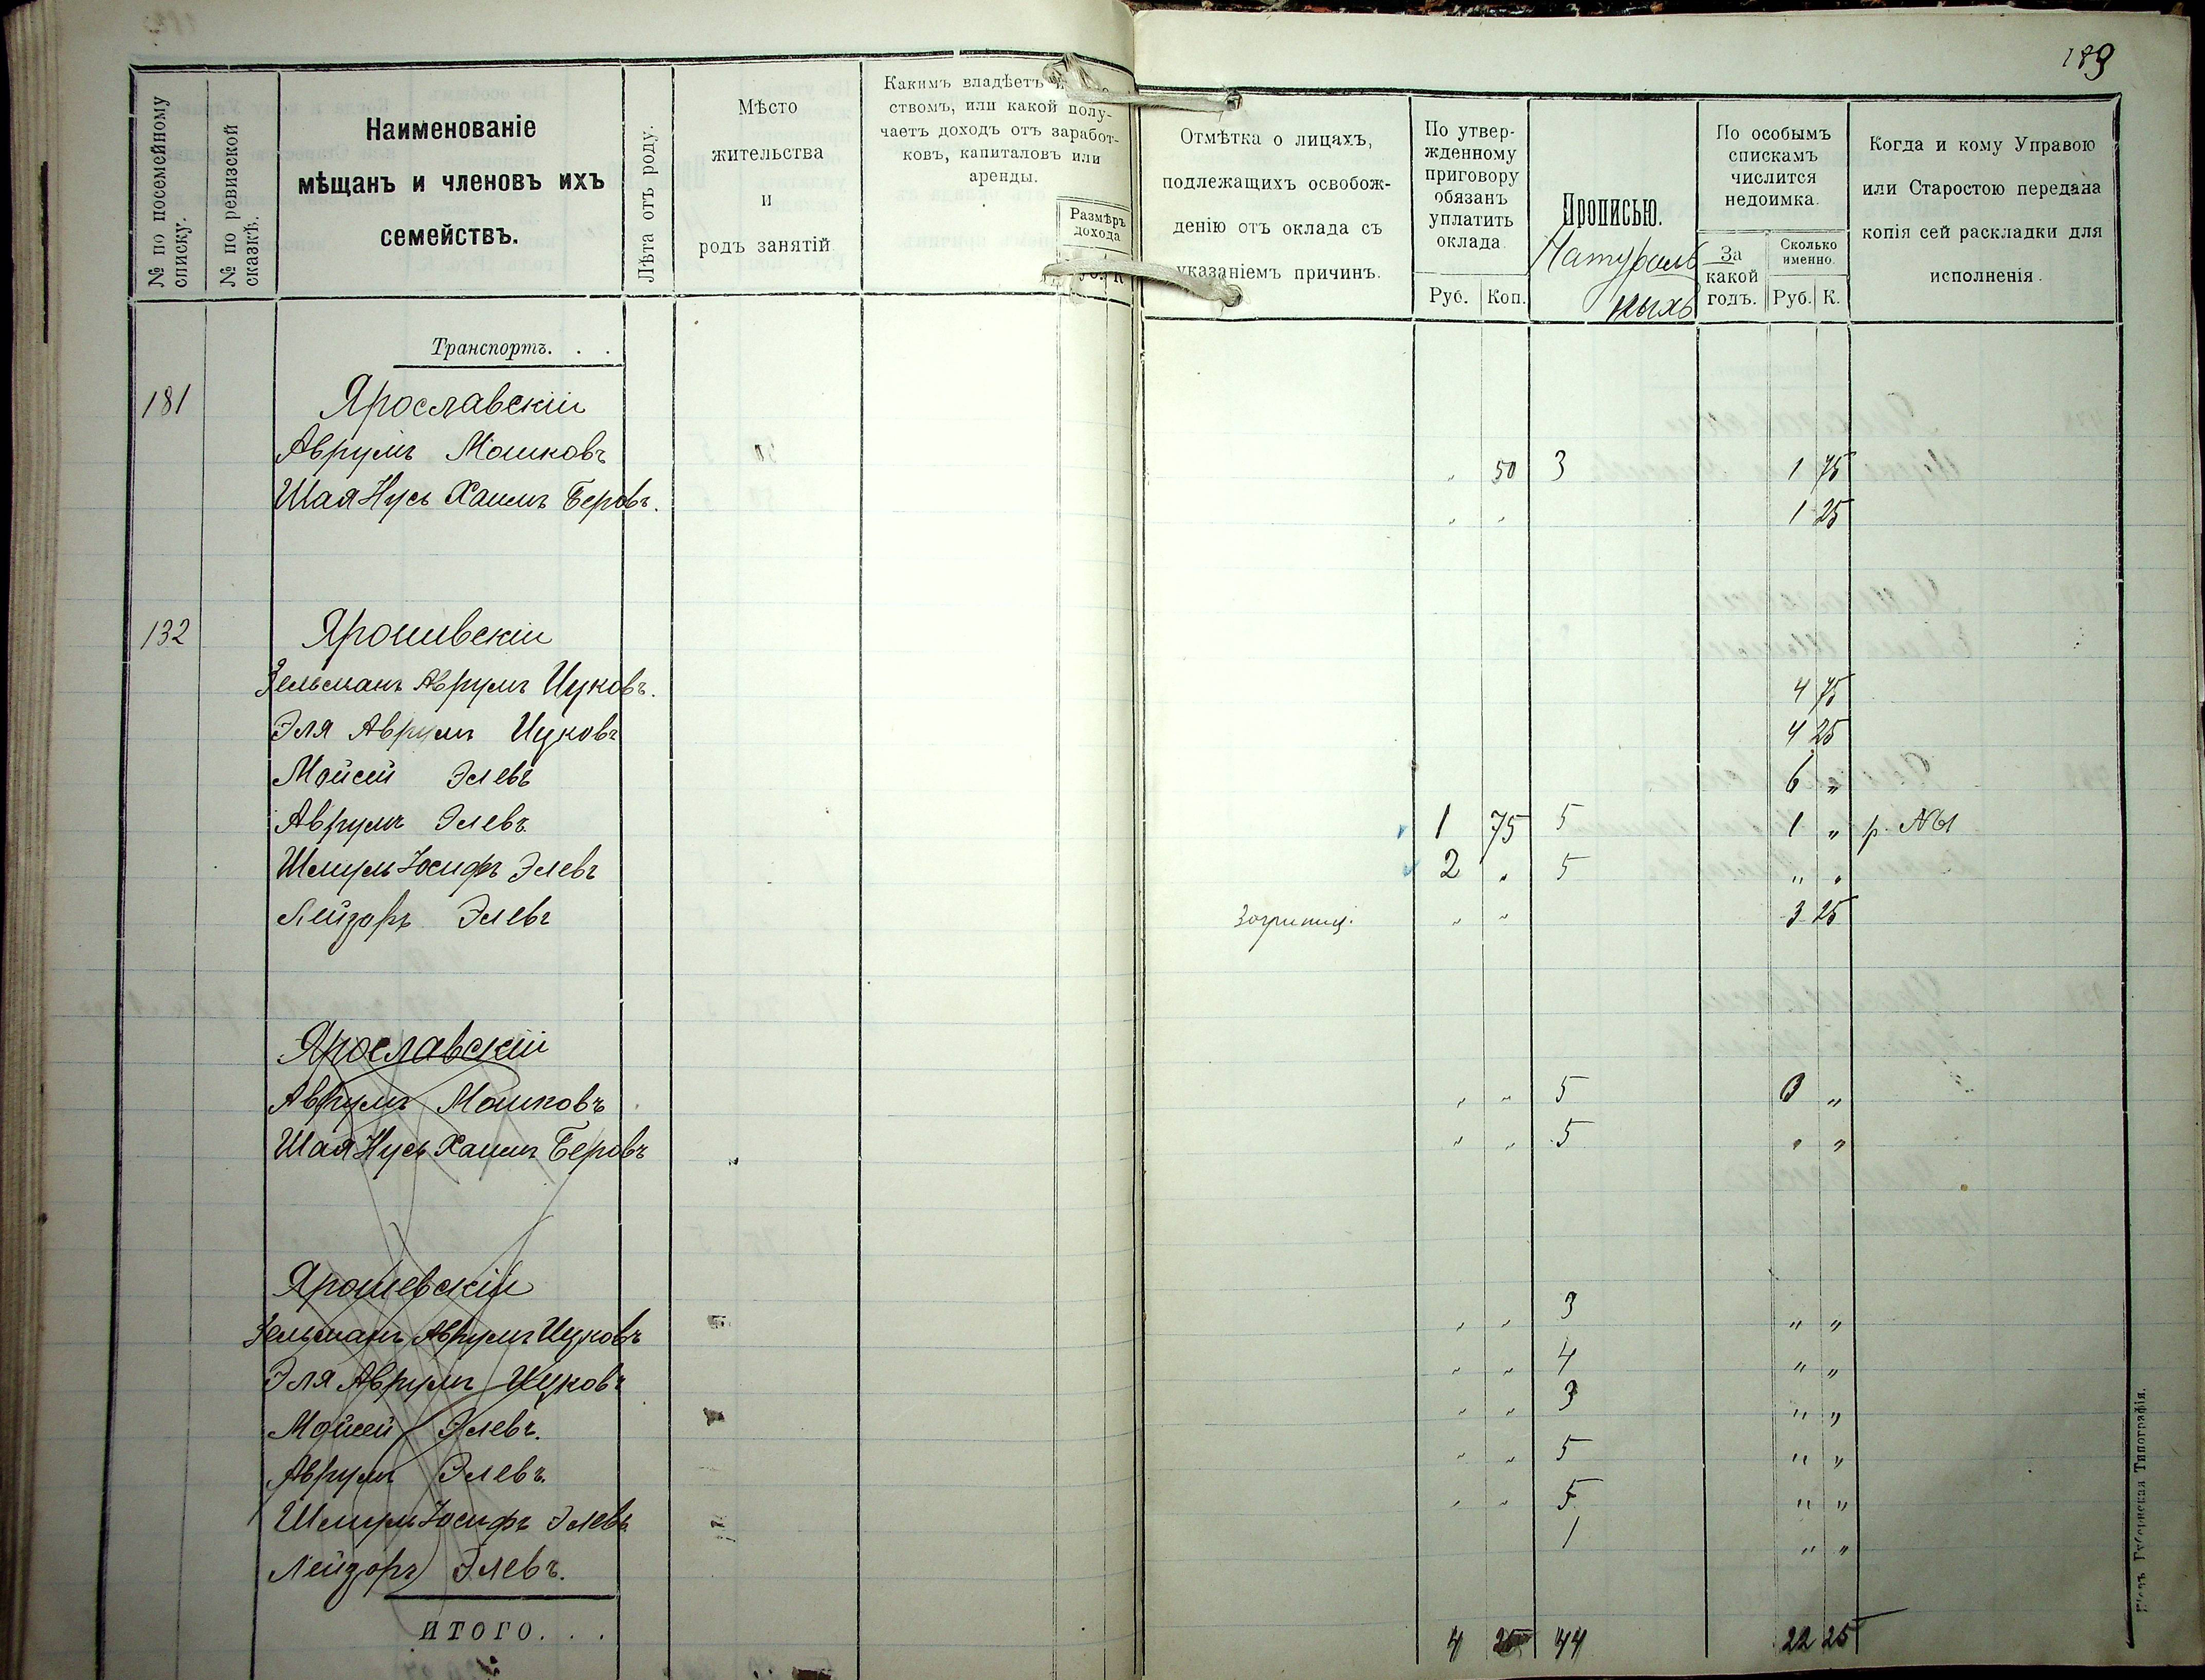 189
№ по посемейному списку.
№ по ревизской сказкѣ.
Наименованіе
мѣщанъ и членовъ ихъ
семействъ.
Лѣта отъ роду.
Мѣсто
жительства
и
родъ занятій
Какимъ владѣетъ
ствомъ, или какой полу-
чаетъ доходъ отъ заработ-
ковъ, капиталовъ или
аренды.
Размѣръ
дохода
К
Отмѣтка о лицахъ,
подлежащихъ освобож-
денію отъ оклада съ
указаніемъ причинъ.
По утвер-
жденному
приговору
обязанъ
уплатить
оклада
Руб. Коп.
Прописью.
Натураль
ныхъ
По особымъ
спискамъ
числится
недоимка.
За
какой
годъ.
Сколько
именно.
Руб. К.
Когда и кому Управою
или Старостою передана
копія сей раскладки для
исполненія.
Транспортъ. . .
181 Ярославскій
Аврумъ Мошковъ „ 50 3 1 75
Шая Нусь Хаимъ Беровъ. „ „ 1 25
132 Ярошевскій
Зельманъ Аврумъ Ицковъ. 4 75
Эля Аврумъ Ицковъ 4 25
Мойсей Элевъ 6 „
Аврумъ Элевъ 1 75 5 1 „ р. №1
Шмуль Іосифъ Элевъ 2 „ 5 „ „
Лейзоръ Элевъ „ „ 3 25
Ярославскій
Аврумъ Мошковъ „ „ 5 0 „
Шая Нусь Хаимъ Беровъ „ „ 5 „ „
Ярошевскій
Зельманъ Аврумъ Ицковъ „ „ 3 „ „
Эля Аврумъ Ицковъ „ „ 4 „ „
Мойсей Элевъ. „ „ 3 „ „
Аврумъ Элевъ. „ „ 5 „ „
Шмуль Іосифъ Элевъ „ „ 5 „ „
Лейзоръ Элевъ. 1 „ „
ИТОГО. . . 4 25 44 22 25
Губернская Типографія.